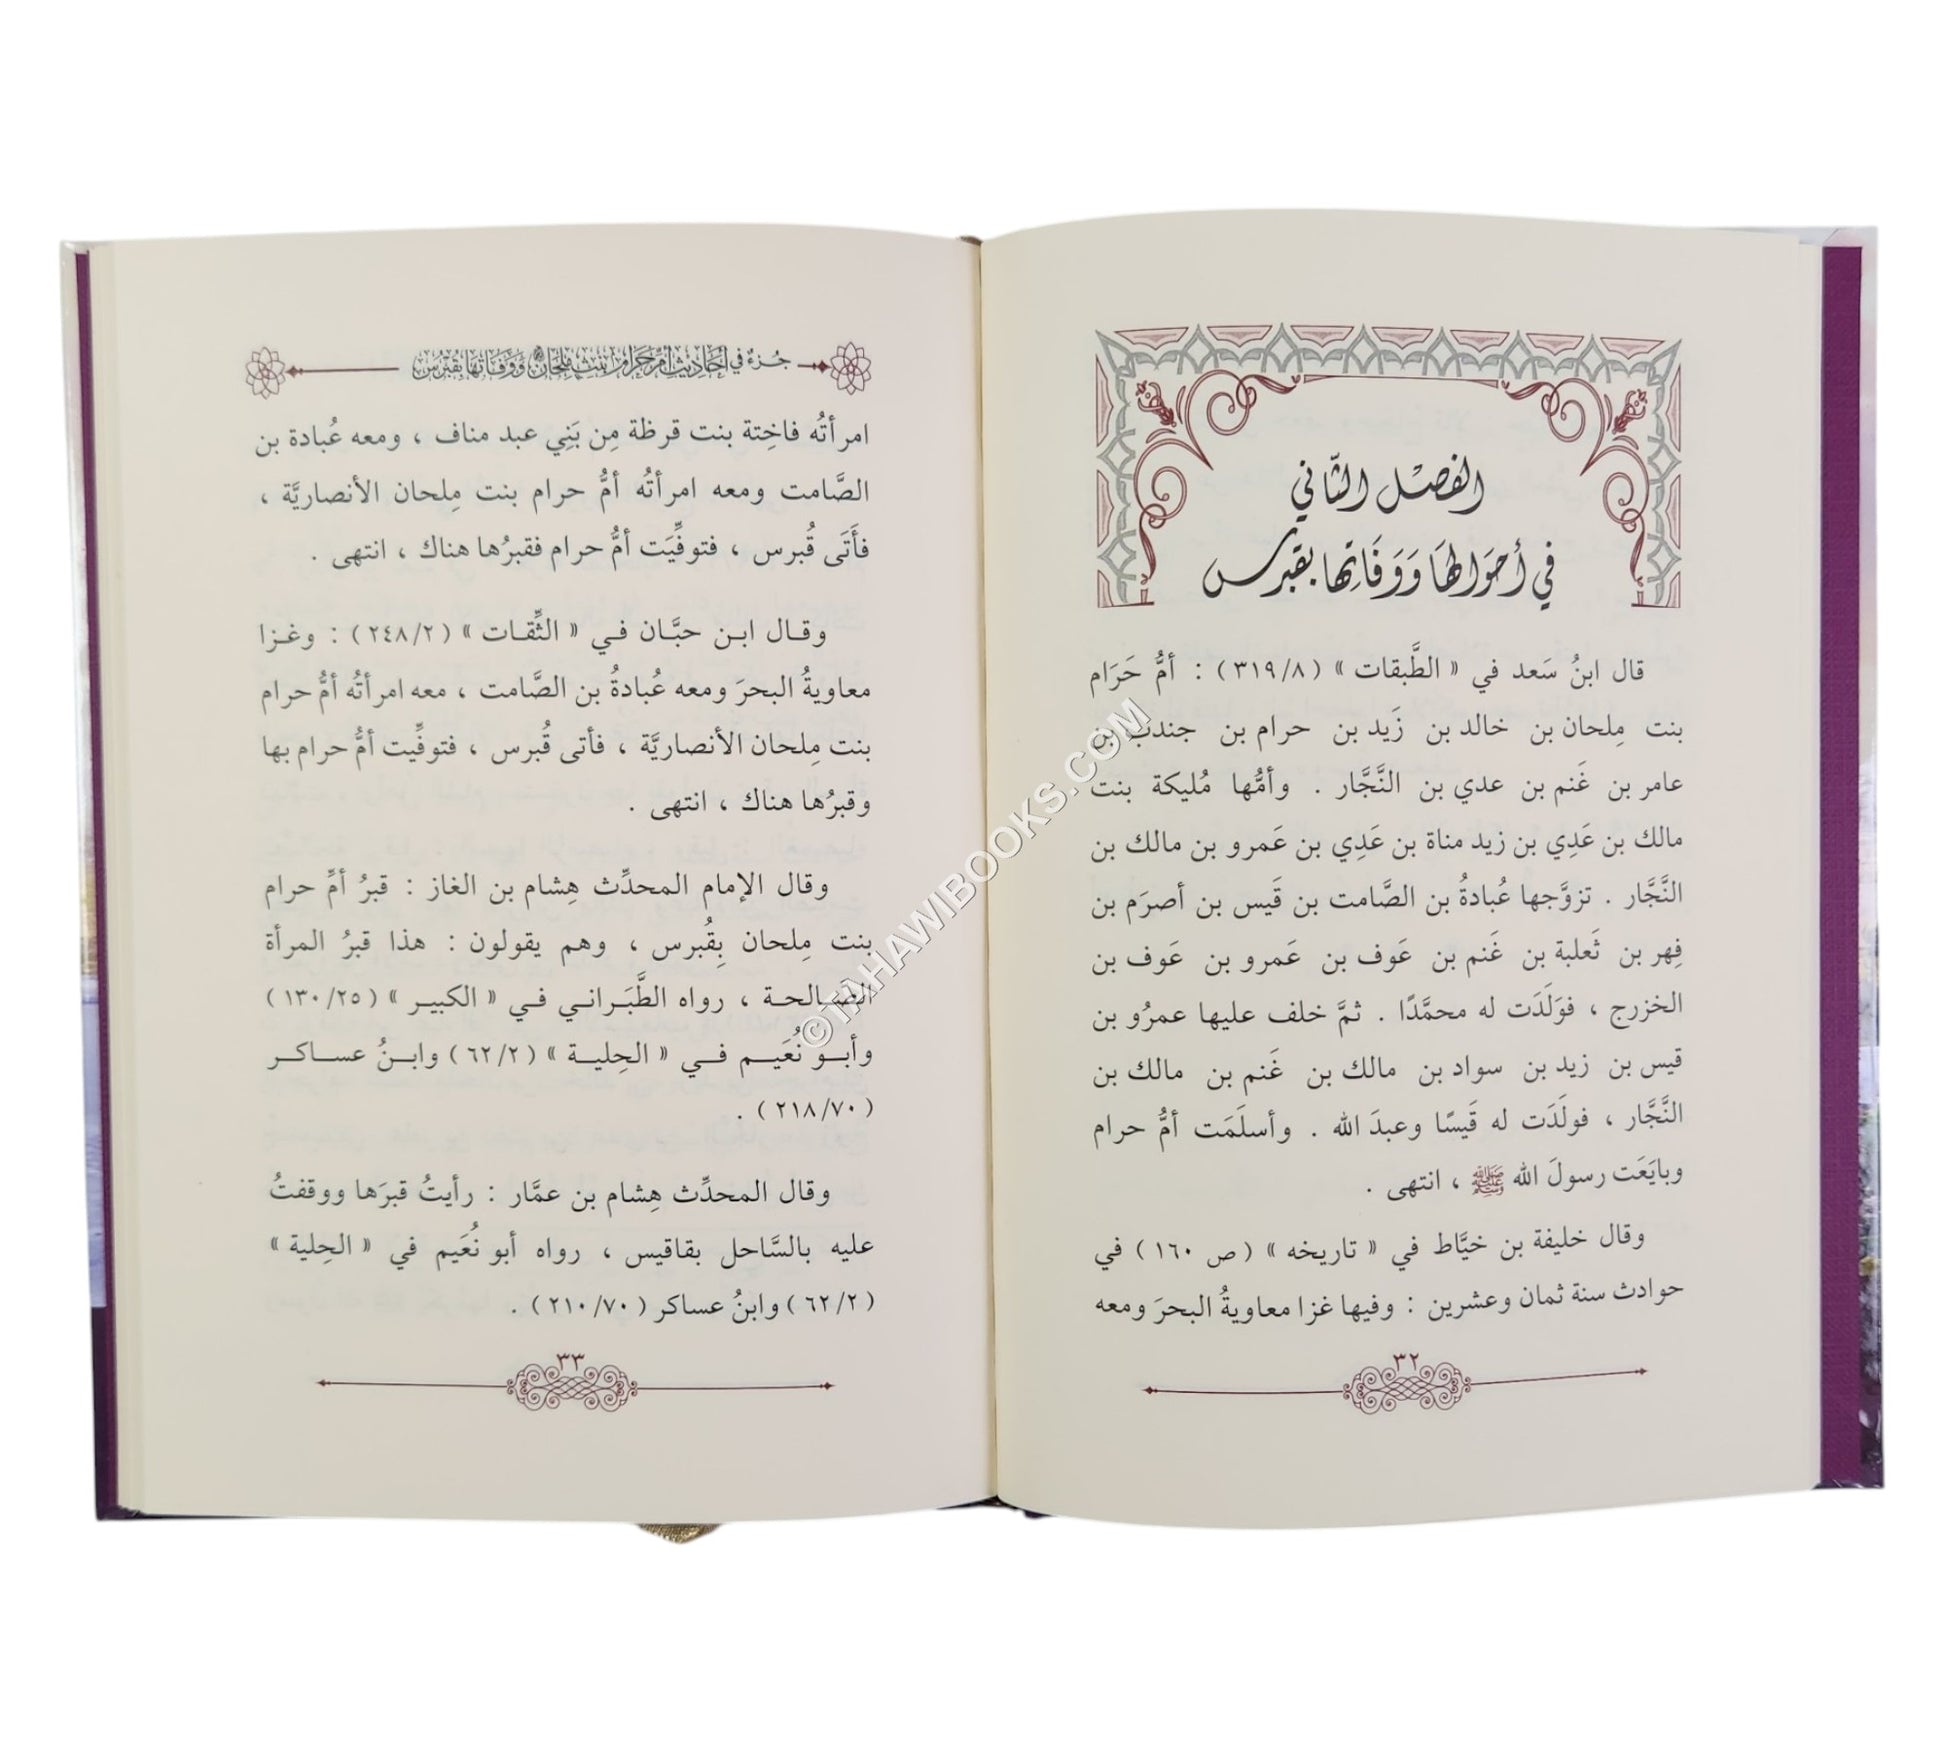 الفصل الثاني
في أحوالها ووفاتها بقبرس
قال ابنُ سَعد في « الطَّبقات » ( ٣١٩/٨ ) : أمُّ حَرَام
بنت مِلحان بن خالد بن زَيد بن حرام بن جندب بن
عامر بن غَنم بن عدي بن النَّجَّار . وأمُّها مُليكة بنت
مالك بن عَدِي بن زيد مناة بن عَدِي بن عَمرو بن مالك بن
النَّجَّار . تزوَّجها عُبادةُ بن الصَّامت بن قَيس بن أصرَم بن
فِهر بن ثَعلبة بن غَنم بن عَوف بن عَمرو بن عَوف بن
الخزرج ، فوَلَدَت له محمَّدًا . ثمَّ خلف عليها عمرُو بن
قيس بن زيد بن سواد بن مالك بن غَنم بن مالك بن
النَّجَّار ، فولَدَت له قَيسًا وعبدَ الله . وأسلَمَت أمُّ حرام
وبايَعَت رسولَ الله ﷺ ، انتهى .
وقال خليفة بن خيَّاط في « تاريخه » ( ص ١٦٠ ) في
حوادث سنة ثمان وعشرين : وفيها غزا معاويةُ البحرَ ومعه
٣٢
جُزءٌ في أحاديث أم حرام بنت ملحان ووفاتها بقبرس
امرأتُه فاخِتة بنت قرظة مِن بَنِي عبد مناف ، ومعه عُبادة بن
الصَّامت ومعه امرأتُه أمُّ حرام بنت مِلحان الأنصاريَّة ،
فأَتَى قُبرس ، فتوفِّيَت أمُّ حرام فقبرُها هناك ، انتهى .
وقال ابن حبَّان في « الثِّقات » ( ٢٤٨/٢ ) : وغزا
معاويةُ البحرَ ومعه عُبادةُ بن الصَّامت ، معه امرأتُه أمُّ حرام
بنت مِلحان الأنصاريَّة ، فأتى قُبرس ، فتوفِّيت أمُّ حرام بها
وقبرُها هناك ، انتهى .
وقال الإمام المحدِّث هِشام بن الغاز : قبرُ أمِّ حرام
بنت مِلحان بِقُبرس ، وهم يقولون : هذا قبرُ المرأة
الصالحة ، رواه الطَّبَراني في « الكبير » ( ١٣٠/٢٥ )
وأبو نُعَيم في « الحِلية » ( ٦٢/٢ ) وابنُ عساكر
( ٢١٨/٧٠ ) .
وقال المحدِّث هِشام بن عمَّار : رأيتُ قبرَها ووقفتُ
عليه بالسَّاحل بقاقيس ، رواه أبو نُعَيم في « الحِلية »
( ٦٢/٢ ) وابنُ عساكر ( ٢١٠/٧٠ ) .
٣٣
©TAHAWIBOOKS.COM